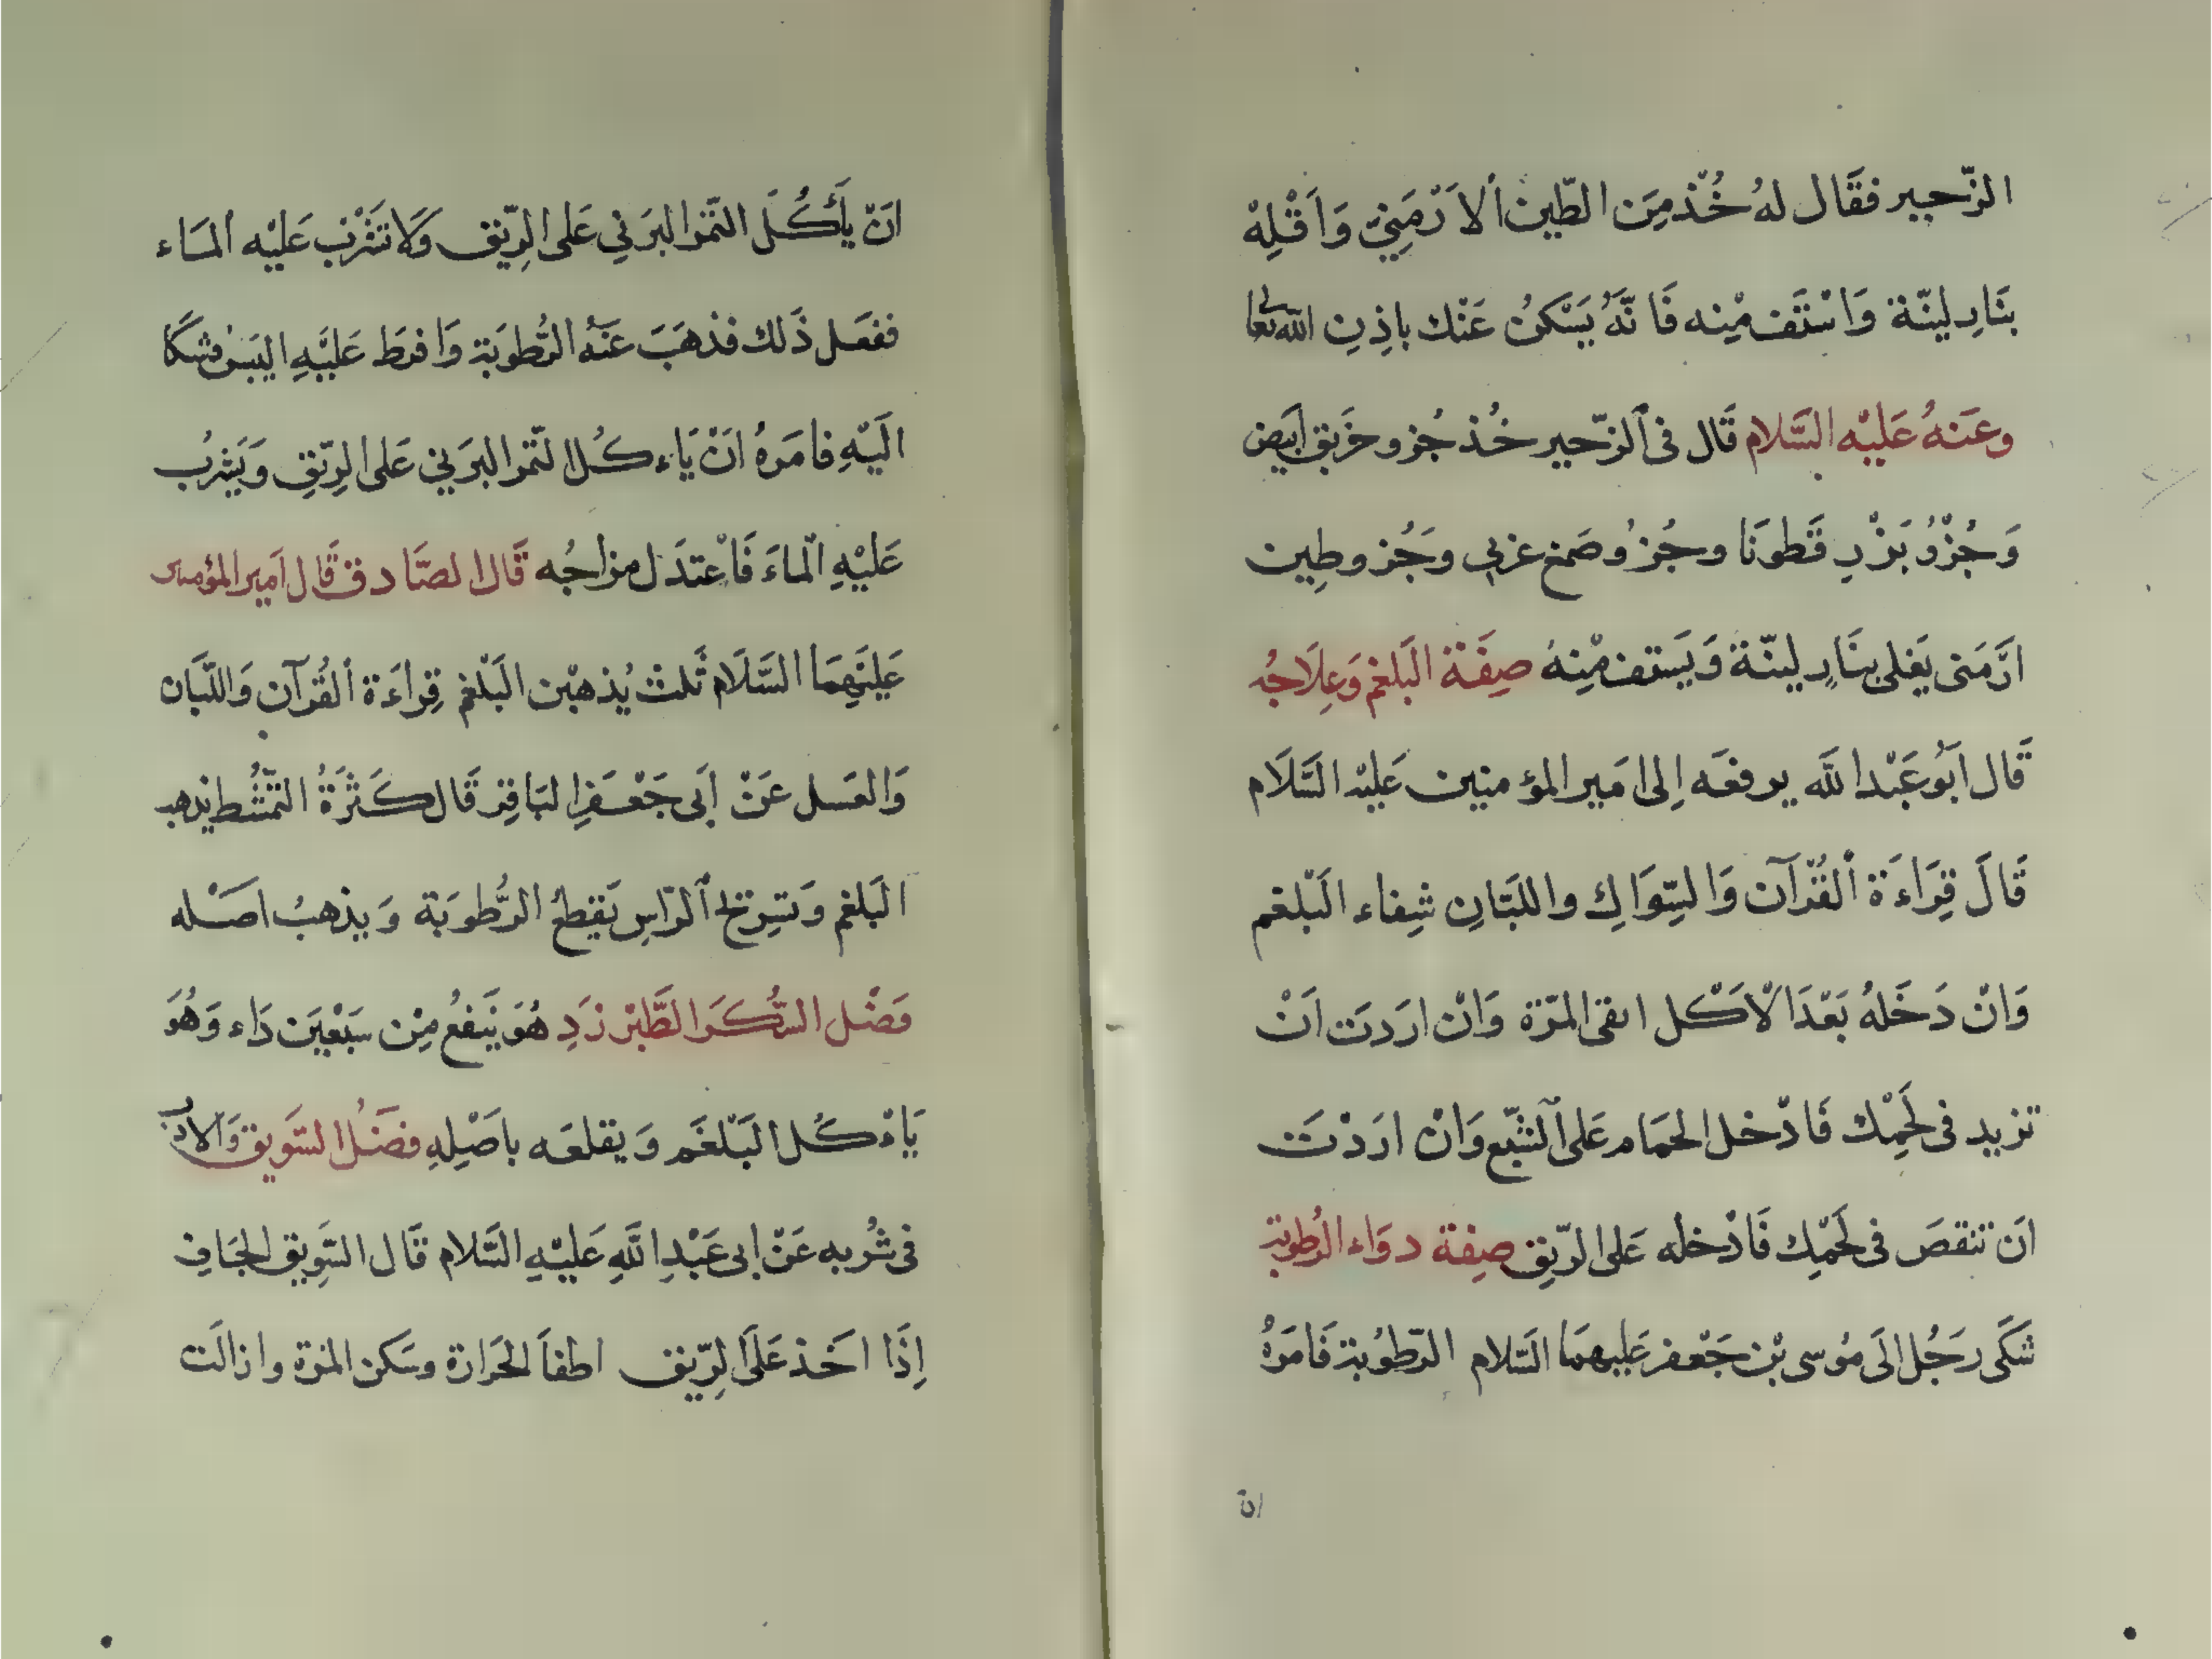 الزّحير فقَال لهُ خُذ مِنَ الطّين اْلاَرْمَنِيّ وَاَقْلِهْ
بنَارٍ لينّة وَاسْتَف مْنِه فَانَّهُ يَسْكنُ عَنْك باِذِنِ الله تعا
وعَنهُ عَليْه السَّلام قَال فى اْلزّحير خُذ جُزو خَربق اَبيض
وَجُزْوُ بَزْرِ قَطونَا وجُزوُ صَمغ عَربى وجَُزو طِين
ارَّمَنى يَغلى بنَارٍ لينّة وَيَستف مْنِهُ صِفَة البَلغم وَعِلَاجُه
قَال ابَوُ عَبْد الله يرفعَه اِلى امَير المؤمنين عَليْه السَّلَام
قَالَ قِرَاءَة اْلقُرْآن وَالسِّوَاكِ واللبَّانِ شِفاء البَلغم
وَانْ دَخَلهُ بَعْدَ الْاَكْل انقى المرّة وَانْ ارَدت اَنْ
تزيد فى لَحِمْك فَادْخل الحمَام عَلى اْلشّبع وَانْ ارَدْتَ
اَن تنقصَ فى لَحَمْك فَادْخله عَلى الرّيِق صِفة دوَاء الرُطوبَة
شكَى رجَُل الَى مُوسى بْن جَعْفر عَليهمَا السّلام الرّطوُبة فَامَرهُ
ان
انَْ يَأكُلَ التّمر البَرني عَلى الرِّيق وَلَا تشْرب عَليْه الْمَاء
ففعَل ذَلك فذهَبَ عَنْهُ الرُّطوبَة وَافرَط عَليَْهِ اليبَسْ فشكَا
اليَْهِ فامَرهُ انَْ يَاءكُل التّمر البرَني عَلى الرِّيقِ وَيَشربُ
عَليْهِ الْماءَ فَاْعتدَل مزاجُه قَال الصَّادق قَال اَمير المؤمنين
عَليَْهِمَا السَّلَام ثَلث يُذهبْن البَلْغم قِراءَة اْلقُرآن وَاللّبَان
وَالعَسل عَنْ اَبى جَعْفَرِ البَاقِر قَال كَثرَةُ التّمشُّط يذهب
البَلغم وَتسِريح اْلرّاسِ يَقطعُ الرُّطوبَة وَيذهبُ اصَْله
فَضْل السُّكَر الطَّبْرزَدِ هُوَ يَنفعُ مِنْ سَبْعيَن دَاء وَهُوَ
يَاءْكُل البَلْغَم وَيقلعَه باَصْلِهِ فضَلُ السَّويق وَالادب
فى شُربه عَنْ ابى عَبْدِ اللهِ عَليْهِ السَّلام قَال السَّوِيق الجَافِ
اِذَا اخَذ عَلَى الرِّيق اطفاَ الحَرارة وسَكن المرة وازالَت